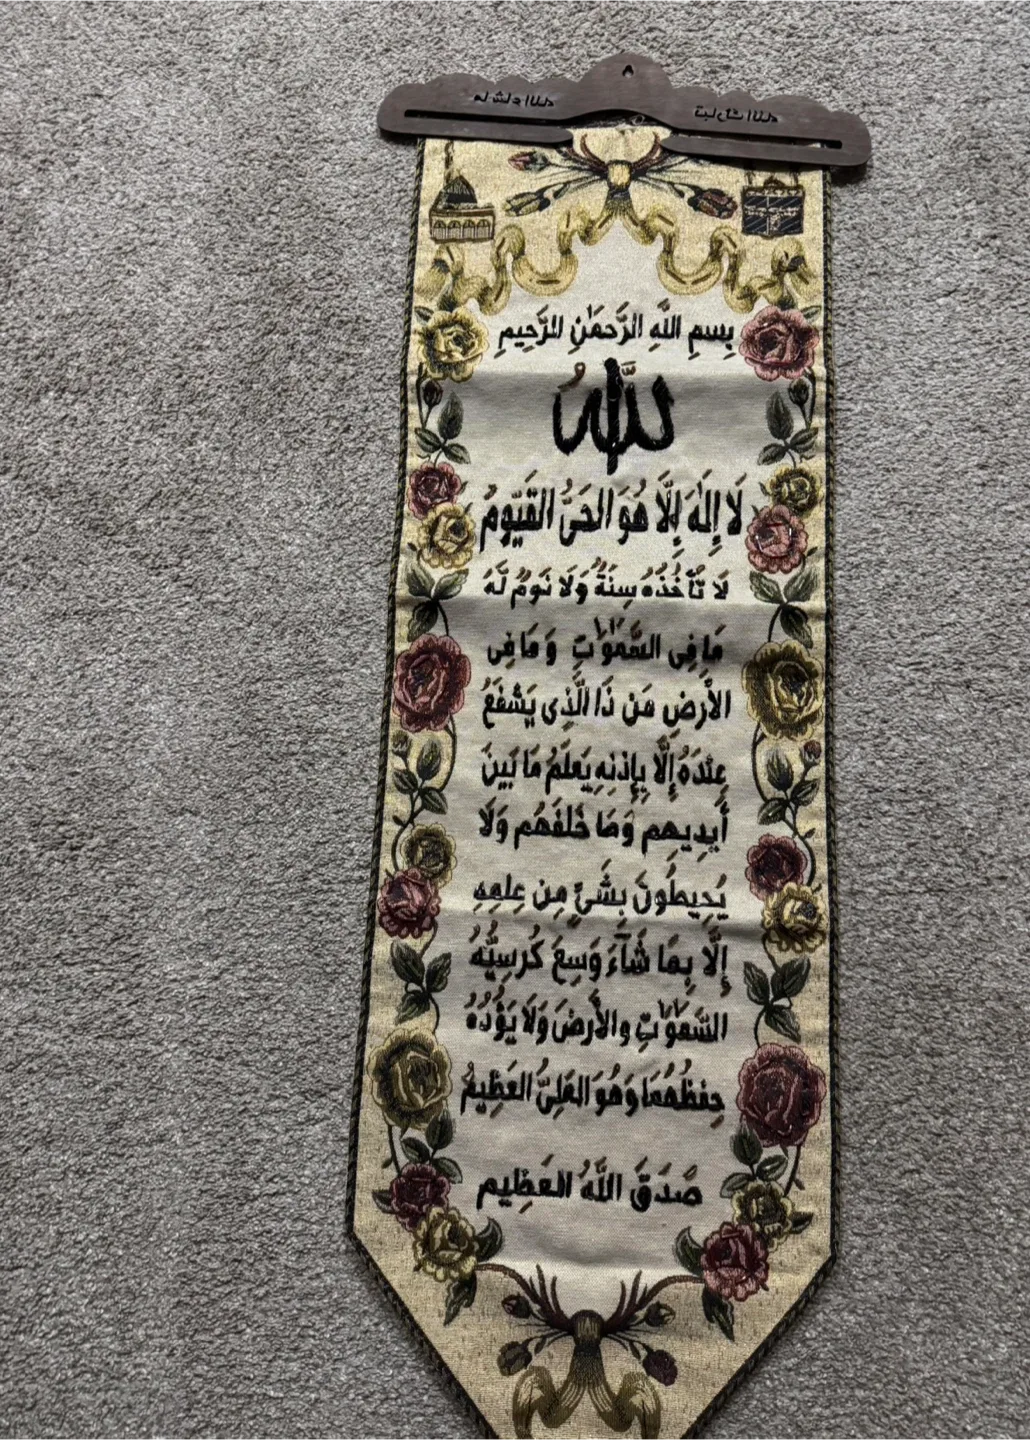 بِسمِ اللَّهِ الرَّحمَٰنِ الرَّحِيمِ
اللَّهُ
لَا إِلَٰهَ إِلَّا هُوَ الحَىُّ القَيُّومُ
لَا تَأخُذُهُ سِنَةٌ وَلَا نَومٌ لَّهُ
مَا فِى السَّمَٰوَٰتِ وَمَا فِى
الأَرضِ مَن ذَا الَّذِى يَشفَعُ
عِندَهُ إِلَّا بِإِذنِهِ يَعلَمُ مَا بَينَ
أَيدِيهِم وَمَا خَلفَهُم وَلَا
يُحِيطُونَ بِشَىٍ مِن عِلمِهِ
إِلَّا بِمَا شَآءَ وَسِعَ كُرسِيُّهُ
السَّمَٰوَٰتِ والأَرضَ وَلَا يَؤُدُهُ
حِفظُهُمَا وَهُوَ العَلِىُّ العَظِيمُ
صَدَقَ اللَّهُ العَظِيم